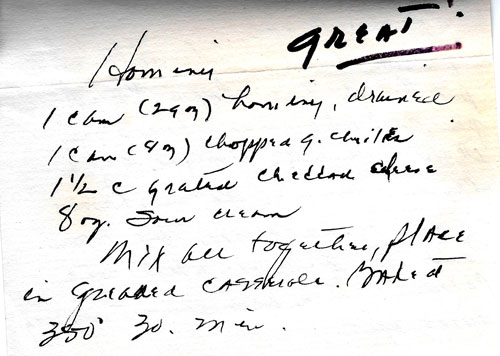 GREAT!
Hominy
1 can (29 oz) hominy, drained
1 can (8 oz) chopped g. chilis
1 1/2 c grated cheddar cheese
8 oz. sour cream
Mix all together, place
in greased casserole. Bake at
350° 30. min.